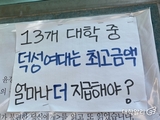 13개 대학 중
덕성여대는 최고금액
얼마나 더 지급해야?